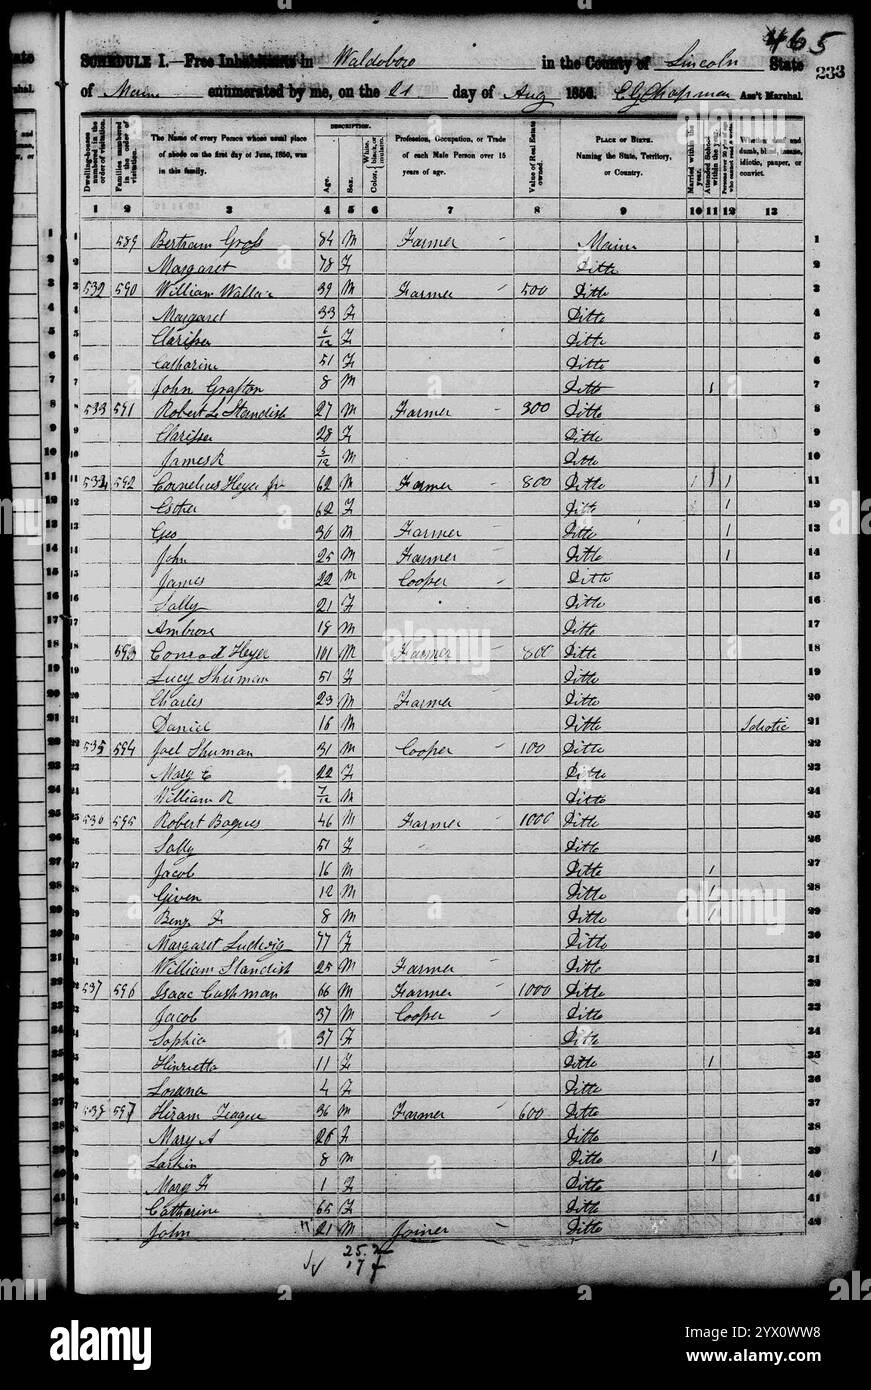 465
SCHEDULE I.—Free Inhabitants in Waldoboro in the County of Lincoln State 233
of Maine enumerated by me, on the 21 day of Aug 1850. Ass't Marshal.
Dwelling-houses numbered in the order of visitation.
Families numbered in the order of visitation.
The Name of every Person whose usual place of abode on the first day of June, 1850, was in this family.
DESCRIPTION.
Age.
Sex.
Color, White, black, or mulatto.
Profession, Occupation, or Trade of each Male Person over 15 years of age.
Value of Real Estate owned.
PLACE OF BIRTH. Naming the State, Territory, or Country.
Married within the year.
Attended School within the year.
Persons over 20 y'rs of age who cannot read & write.
Whether deaf and dumb, blind, insane, idiotic, pauper, or convict.
1 2 3 4 5 6 7 8 9 10 11 12 13
1 589 Bertram Gross 84 M Farmer Maine 1
2 Margaret 78 F Ditto 2
3 532 590 William Wallace 39 M Farmer 500 Ditto 3
4 Margaret 33 F Ditto 4
5 Clarissa 6/12 F Ditto 5
6 Catharine 51 F Ditto 6
7 John Grafton 8 M Ditto 1 7
8 533 591 Robert L Standish 27 M Farmer 300 Ditto 8
9 Clarissa 28 F Ditto 9
10 James R 5/12 M Ditto 10
11 534 592 Cornelius Heyer Jr 62 M Farmer 800 Ditto 1 1 1 11
12 Esther 62 F Ditto 1 12
13 Geo 36 M Farmer Ditto 1 13
14 John 25 M Farmer Ditto 1 14
15 James 22 M Cooper Ditto 15
16 Sally 21 F Ditto 16
17 Ambrose 18 M Ditto 17
18 593 Conrad Heyer 101 M Farmer 800 Ditto 18
19 Lucy Shuman 51 F Ditto 19
20 Charles 23 M Farmer Ditto 20
21 Daniel 16 M Ditto Idiotic 21
22 535 594 Joel Shuman 31 M Cooper 100 Ditto 22
23 Mary C 22 F Ditto 23
24 William R 7/12 M Ditto 24
25 536 595 Robert Bogues 46 M Farmer 1000 Ditto 25
26 Sally 51 F Ditto 26
27 Jacob 16 M Ditto 1 27
28 Given 12 M Ditto 1 28
29 Benj F 8 M Ditto 1 29
30 Margaret Ludwig 77 F Ditto 30
31 William Standish 25 M Farmer Ditto 31
32 537 596 Isaac Cushman 66 M Farmer 1000 Ditto 32
33 Jacob 37 M Cooper Ditto 33
34 Sophia 37 F Ditto 34
35 Henrietta 11 F Ditto 1 35
36 Lorana 4 F Ditto 36
37 538 597 Hiram Teague 36 M Farmer 600 Ditto 37
38 Mary A 26 F Ditto 38
39 Larkin 8 M Ditto 1 39
40 Mary F 1 F Ditto 40
41 Catharine 65 F Ditto 41
42 John 21 M Joiner Ditto 42
25
17
alamy
alamy
alamy
alamy
Image ID: 2YX0WW8
www.alamy.com